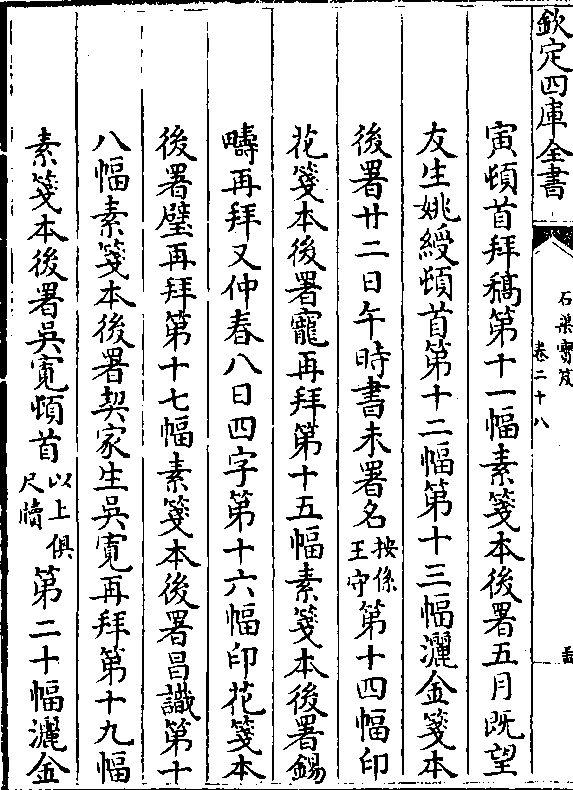 欽定四庫全書
石渠寶笈
卷二十八
寅頓首拜稿第十一幅素箋本後署五月既望
友生姚綬頓首第十二幅第十三幅灑金箋本
後署廿二日午時書未署名按係王守第十四幅印
花箋本後署寵再拜第十五幅素箋本後署錫
疇再拜又仲春八日四字第十六幅印花箋本
後署璧再拜第十七幅素箋本後署昌識第十
八幅素箋本後署契家生吳寬再拜第十九幅
素箋本後署吳寬頓首以上俱尺牘第二十幅灑金